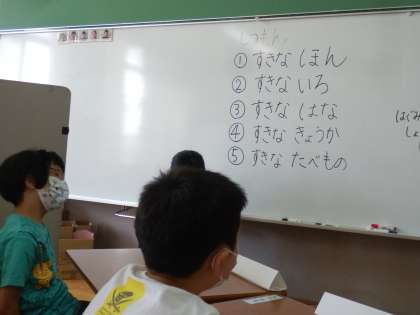 しつもん
① すきな ほん
② すきな いろ
③ すきな はな
④ すきな きょうか
⑤ すきな たべもの